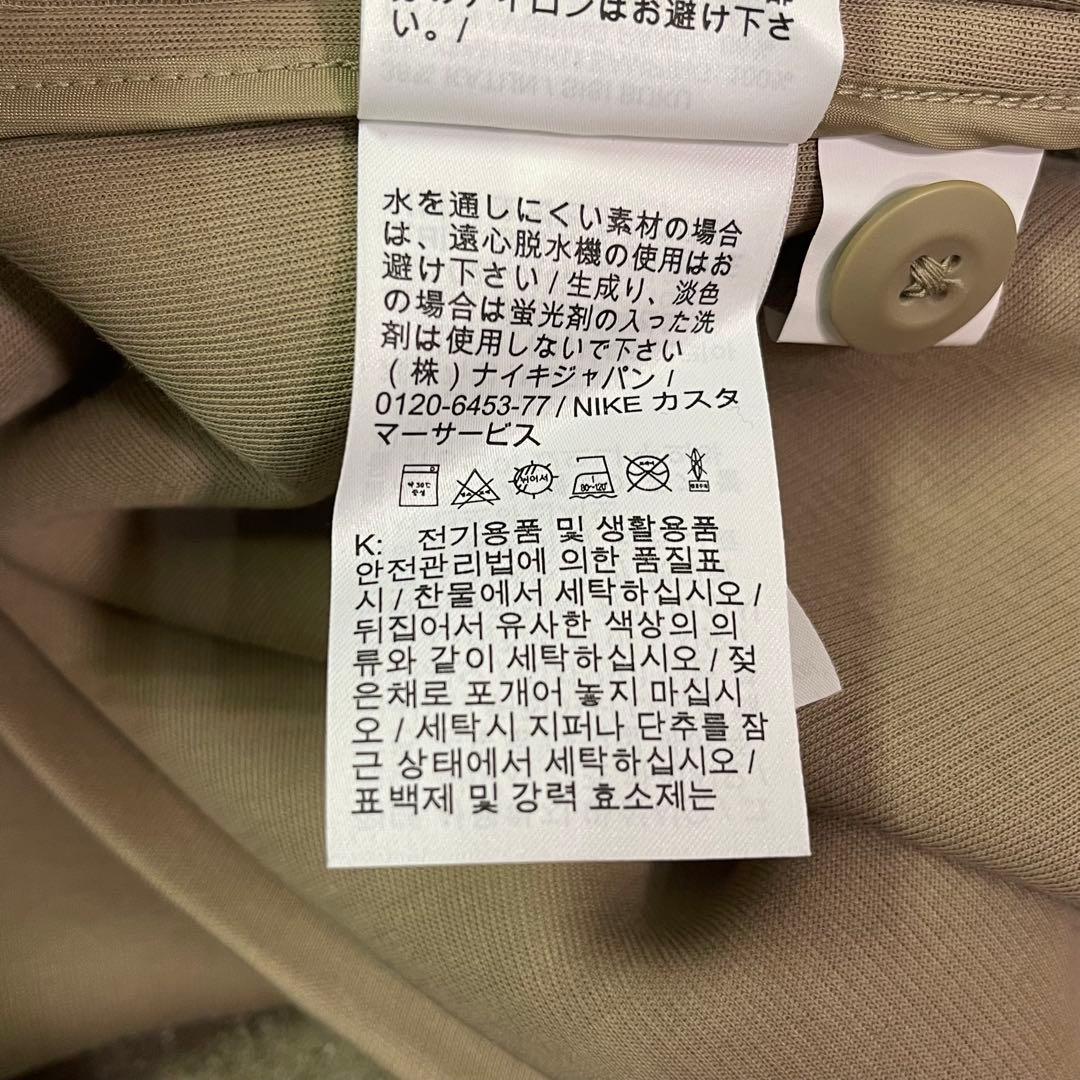 ナイロンはお避け下さ
い。/
水を通しにくい素材の場合
は、遠心脱水機の使用はお
避け下さい / 生成り、淡色
の場合は蛍光剤の入った洗
剤は使用しないで下さい
(株) ナイキジャパン /
0120-6453-77 / NIKE カスタ
マーサービス
약 30℃
중성
뉘어서
80~120℃
K: 전기용품 및 생활용품
안전관리법에 의한 품질표
시 / 찬물에서 세탁하십시오 /
뒤집어서 유사한 색상의 의
류와 같이 세탁하십시오 / 젖
은채로 포개어 놓지 마십시
오 / 세탁시 지퍼나 단추를 잠
근 상태에서 세탁하십시오 /
표백제 및 강력 효소제는